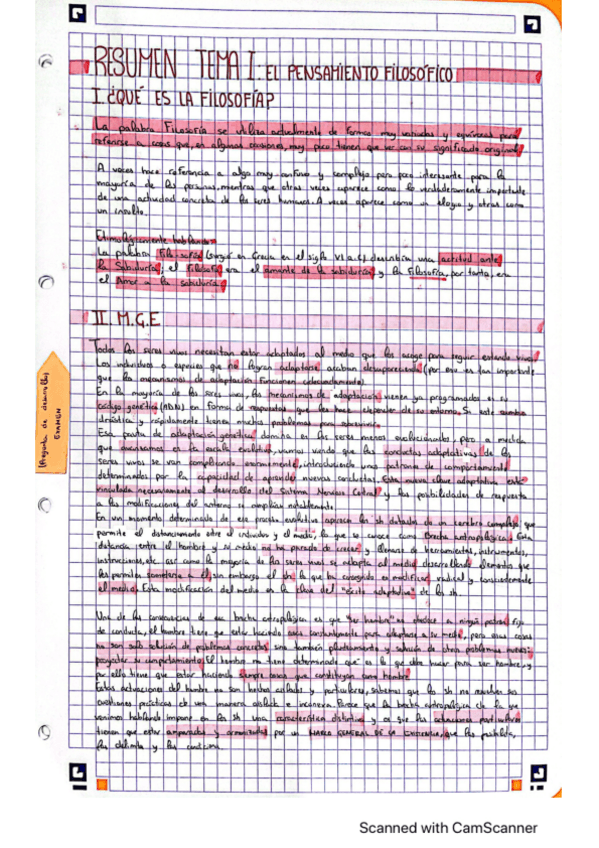 RESUMEN TEMA I: EL PENSAMIENTO FILOSÓFICO
I. ¿QUÉ ES LA FILOSOFÍA?
La palabra Filosofía se utiliza actualmente de forma muy variada y equívoca para
referirse a cosas que, en algunas ocasiones, muy poco tienen que ver con su significado original
A veces hace referencia a algo muy confuso y complejo para poco interesante para la
mayoría de las personas, mientras que otras veces aparece como lo verdaderamente importante
de una actividad concreta de los seres humanos. A veces aparece como un elogio y otras como
un insulto.
Etimológicamente hablando:
La palabra Filo-sofía (surgió en Grecia en el siglo VI a.C) describía una actitud ante
la Sabiduría; el Filósofo era el amante de la sabiduría y la Filosofía, por tanto, era
el Amor a la sabiduría
II. M.G.E
Todos los seres vivos necesitan estar adaptados al medio que los acoge para seguir estando vivos
Los individuos o especies que no logran adaptarse acaban desapareciendo (por eso es tan importante
que los mecanismos de adaptación funcionen adecuadamente).
En la mayoría de los seres vivos, los mecanismos de adaptación vienen ya programados en su
código genético (ADN) en forma de respuestas que les hace depender de su entorno. Si este cambia
drástica y rápidamente tienen muchos problemas para sobrevivir.
Esa pauta de adaptación genética domina en los seres menos evolucionados, pero a medida
que avanzamos en la escala evolutiva, vamos viendo que las conductas adaptativas de los
seres vivos se van complejizando enormemente, introduciendo unos patrones de comportamiento
determinados por la capacidad de aprender nuevas conductas. Esta nueva clave adaptativa está
vinculada necesariamente al desarrollo del Sistema Nervioso Central y las posibilidades de respuesta
a las modificaciones del entorno se amplían notablemente.
En un momento determinado de ese proceso evolutivo aparecen los sh dotados de un cerebro complejo que
permite el distanciamiento entre el individuo y el medio, lo que se conoce como Brecha antropológica. Esta
distancia entre el hombre y su medio no ha parado de crecer y llenarse de herramientas, instrumentos,
instrucciones, etc. así como la mayoría de los seres vivos se adapta al medio desarrollando elementos que
les permiten someterse a él, sin embargo el sh lo que ha conseguido es modificar radical y conscientemente
el medio. Esta modificación del medio es la clave del "éxito adaptativo" de los sh.
Una de las consecuencias de esa brecha antropológica es que "ser hombre" no obedece a ningún patrón fijo
de conducta, el hombre tiene que estar haciendo cosas constantemente para adaptarse a su medio, pero esas cosas
no son solo solución de problemas concretos sino también planteamiento y solución de otros problemas nuevos:
proyectar su comportamiento. El hombre no tiene determinado qué es lo que debe hacer para ser hombre, y
por ello tiene que estar haciendo siempre cosas que constituyan como hombre.
Estas actuaciones del hombre no son hechos aislados y particulares, sabemos que los sh no resuelven sus
cuestiones prácticas de una manera aislada e inconexa. Parece que la brecha antropológica de la que
venimos hablando impone en los sh una característica distintiva y es que las actuaciones particulares
tienen que estar amparadas y armonizadas por un MARCO GENERAL DE LA EXISTENCIA, que las posibilita,
las delimita y las
(Pregunta de desarrollo)
EXAMEN
Scanned with CamScanner